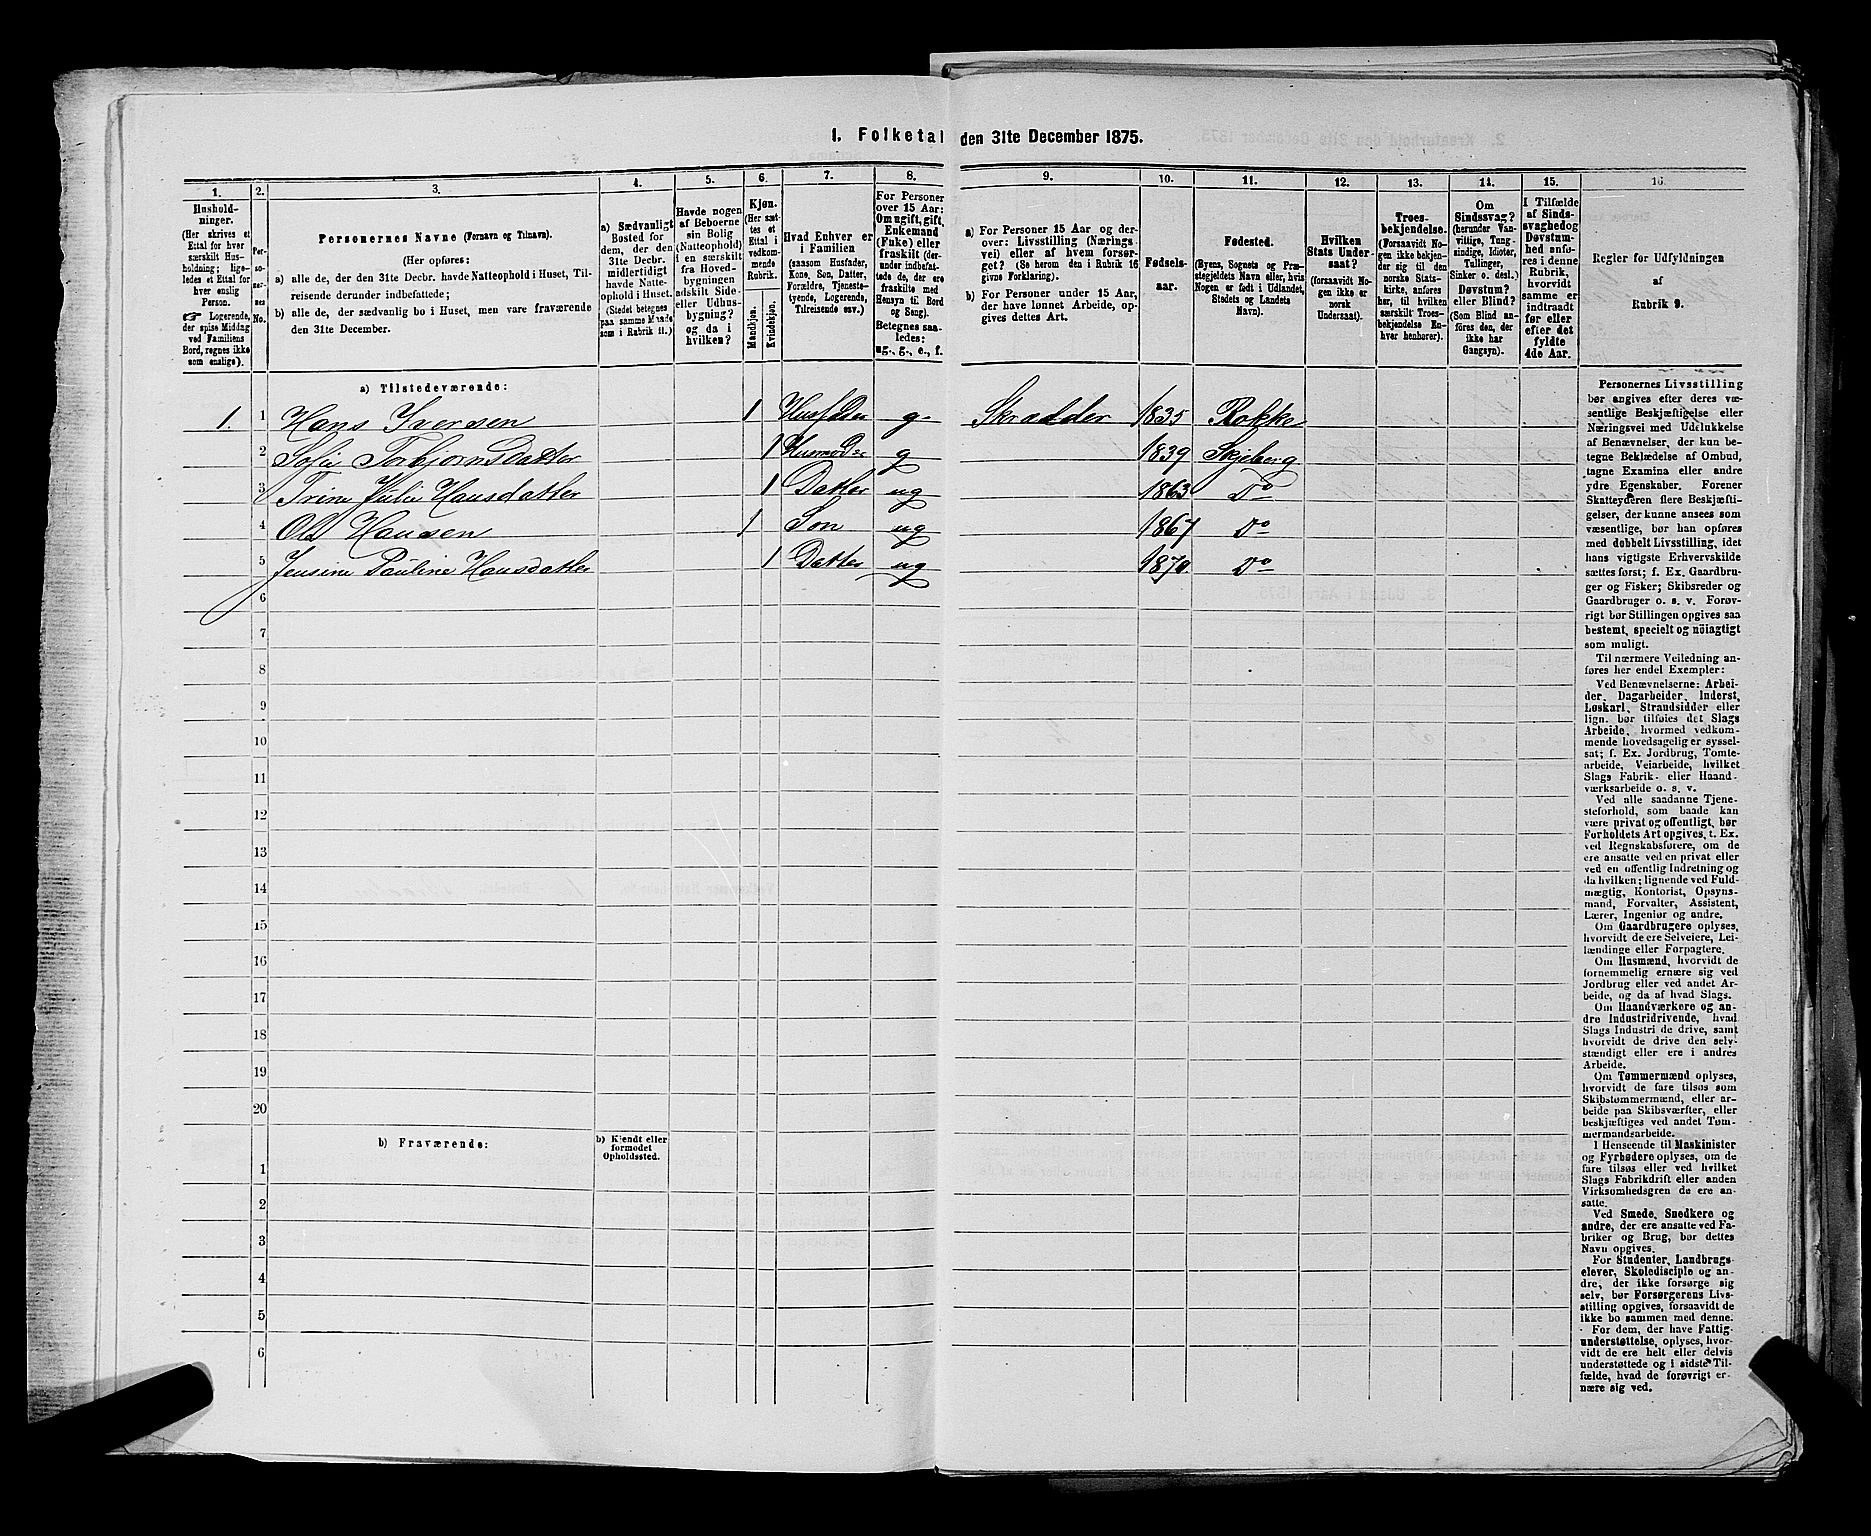 1. Folketal den 31te December 1875.
1.
2.
3.
4.
5.
6.
7.
8.
9.
10.
11.
12.
13.
14.
15.
16.
Hushold-
ninger.
(Her skrives et
Ettal for hver
særskilt Hus-
holdning; lige-
ledes et Ettal for
hver enslig
Person.
☞ Logerende,
der spise Middag
ved Familiens
Bord, regnes ikke
som enslige).
Per-
so-
ner-
nes
No.
Personernes Navne (Fornavn og Tilnavn).
(Her opføres:
a) alle de, der den 31te Decbr. havde Natteophold i Huset, Til-
reisende derunder indbefattede;
b) alle de, der sædvanlig bo i Huset, men vare fraværende
den 31te December.
a) Sædvanligt
Bosted for
dem, der den
31te Decbr.
midlertidigt
havde Natte-
ophold i Huset.
(Stedet betegnes
paa samme Maade
som i Rubrik 11.)
Havde nogen
af Beboerne
sin Bolig
(Natteophold)
i en særskilt
fra Hoved-
bygningen
adskilt Side-
eller Udhus-
bygning?
og da i
hvilken?
Kjøn.
(Her sæt-
tes et
Ettal i
vedkom-
mende
Rubrik.
Mandkjøn.
Kvindekjøn.
Hvad Enhver er
i Familien
(saasom Husfader,
Kone, Søn, Datter,
Forældre, Tjeneste-
tyende, Logerende,
Tilreisende osv.)
For Personer
over 15 Aar:
Om ugift, gift,
Enkemand
(Enke) eller
fraskilt (der-
under indbefat-
tede de, der ere
fraskilte med
Hensyn til Bord
og Seng).
Betegnes saa-
ledes:
ug., g., e., f.
a) For Personer 15 Aar og der-
over: Livsstilling (Nærings-
vei) eller af hvem forsør-
get? (Se herom den i Rubrik 16
givne Forklaring).
b) For Personer under 15 Aar,
der have lønnet Arbeide, op-
gives dettes Art.
Fødsels-
aar.
Fødested.
(Byens, Sognets og Præ-
stegjeldets Navn eller, hvis
Nogen er født i Udlandet,
Stedets og Landets
Navn).
Hvilken
Stats Under-
saat?
(forsaavidt No-
gen ikke er
norsk
Undersaat).
Troes-
bekjendelse.
(Forsaavidt No-
gen ikke bekjen-
der sig til den
norske Stats-
kirke, anføres
her, til hvilken
særskilt Troes-
bekjendelse En-
hver henhører).
Om
Sindssvag?
(herunder Van-
vittige, Tung-
sindige, Idioter,
Tullinger,
Sinker o. desl.)
Døvstum?
eller Blind?
(Som Blind an-
føres den, der
ikke har
Gangsyn).
I Tilfælde
af Sinds-
svaghed og
Døvstum-
hed anfø-
res i denne
Rubrik,
hvorvidt
samme er
indtraadt
før eller
efter det
fyldte
4de Aar.
Regler for Udfyldningen
af
Rubrik 9.
a) Tilstedeværende:
1. 1 Hans Iversen 1 Husfader g Skrædder 1835 Rokke
2 Sofie Torbjørnsdatter 1 Husmoder g 1839 Skjeberg
3 Trine Julie Hansdatter 1 Datter ug 1863 Do
4 Ole Hansen 1 Søn ug 1867 Do
5 Jensine Pauline Hansdatter 1 Datter ug 1870 Do
6
7
8
9
10
11
12
13
14
15
16
17
18
19
20
b) Fraværende:
b) Kjendt eller
formodet
Opholdssted.
1
2
3
4
5
6
Personernes Livsstilling
bør angives efter deres væ-
sentlige Beskjæftigelse eller
Næringsvei med Udelukkelse
af Benævnelser, der kun be-
tegne Beklædelse af Ombud,
tagne Examina eller andre
ydre Egenskaber. Forener
Skatteyderen flere Beskjæfti-
gelser, der kunne ansees som
væsentlige, bør han opføres
med dobbelt Livsstilling, idet
hans vigtigste Erhvervskilde
sættes først; f. Ex. Gaardbru-
ger og Fisker; Skibsreder og
Gaardbruger o. s. v. Forøv-
rigt bør Stillingen opgives saa
bestemt, specielt og nöiagtigt
som muligt.
Til nærmere Veiledning an-
føres her endel Exempler:
Ved Benævnelserne: Arbei-
der, Dagarbeider, Inderst,
Løskarl, Strandsidder eller
lign. bør tilføies det Slags
Arbeide, hvormed vedkom-
mende hovedsagelig er syssel-
sat; f. Ex. Jordbrug, Tomte-
arbeide, Veiarbeide, hvilket
Slags Fabrik- eller Haand-
værksarbeide o. s. v.
Ved alle saadanne Tjene-
steforhold, som baade kan
være privat og offentligt, bør
Forholdets Art opgives, t. Ex.
ved Regnskabsførere, om de
ere ansatte ved en privat eller
ved en offentlig Indretning og
da hvilken; lignende ved Fuld-
mægtig, Kontorist, Opsyns-
mand, Forvalter, Assistent,
Lærer, Ingeniør og andre.
Om Gaardbrugere oplyses,
hvorvidt de ere Selveiere, Lei-
lændinge eller Forpagtere.
Om Husmænd, hvorvidt de
fornemmelig ernære sig ved
Jordbrug eller ved andet Ar-
beide, og da af hvad Slags.
Om Haandværkere og an-
dre Industridrivende, hvad
Slags Industri de drive, samt
hvorvidt de drive den selv-
stændigt eller ere i andres
Arbeide.
Om Tømmermænd oplyses,
hvorvidt de fare tilsøs som
Skibstømmermænd, eller ar-
beide paa Skibsværfter, eller
beskjæftiges ved andet Tøm-
mermandsarbeide.
I Henseende til Maskinister
og Fyrbødere oplyses, om de
fare tilsøs eller ved hvilket
Slags Fabrikdrift eller anden
Virksomhedsgren de ere an-
satte.
Ved Smede, Snedkere og
andre, der ere ansatte ved Fa-
briker og Brug, bør dettes
Navn opgives.
For Studenter, Landbrugs-
elever, Skoledisciple og an-
dre, der ikke forsørge sig
selv, bør Forsørgerens Livs-
stilling opgives, forsaavidt de
ikke bo sammen med denne.
For dem, der have Fattig-
understøttelse, oplyses, hvor-
vidt de ere helt eller delvis
understøttede og i sidste Til-
fælde, hvad de forøvrigt er-
nære sig ved.